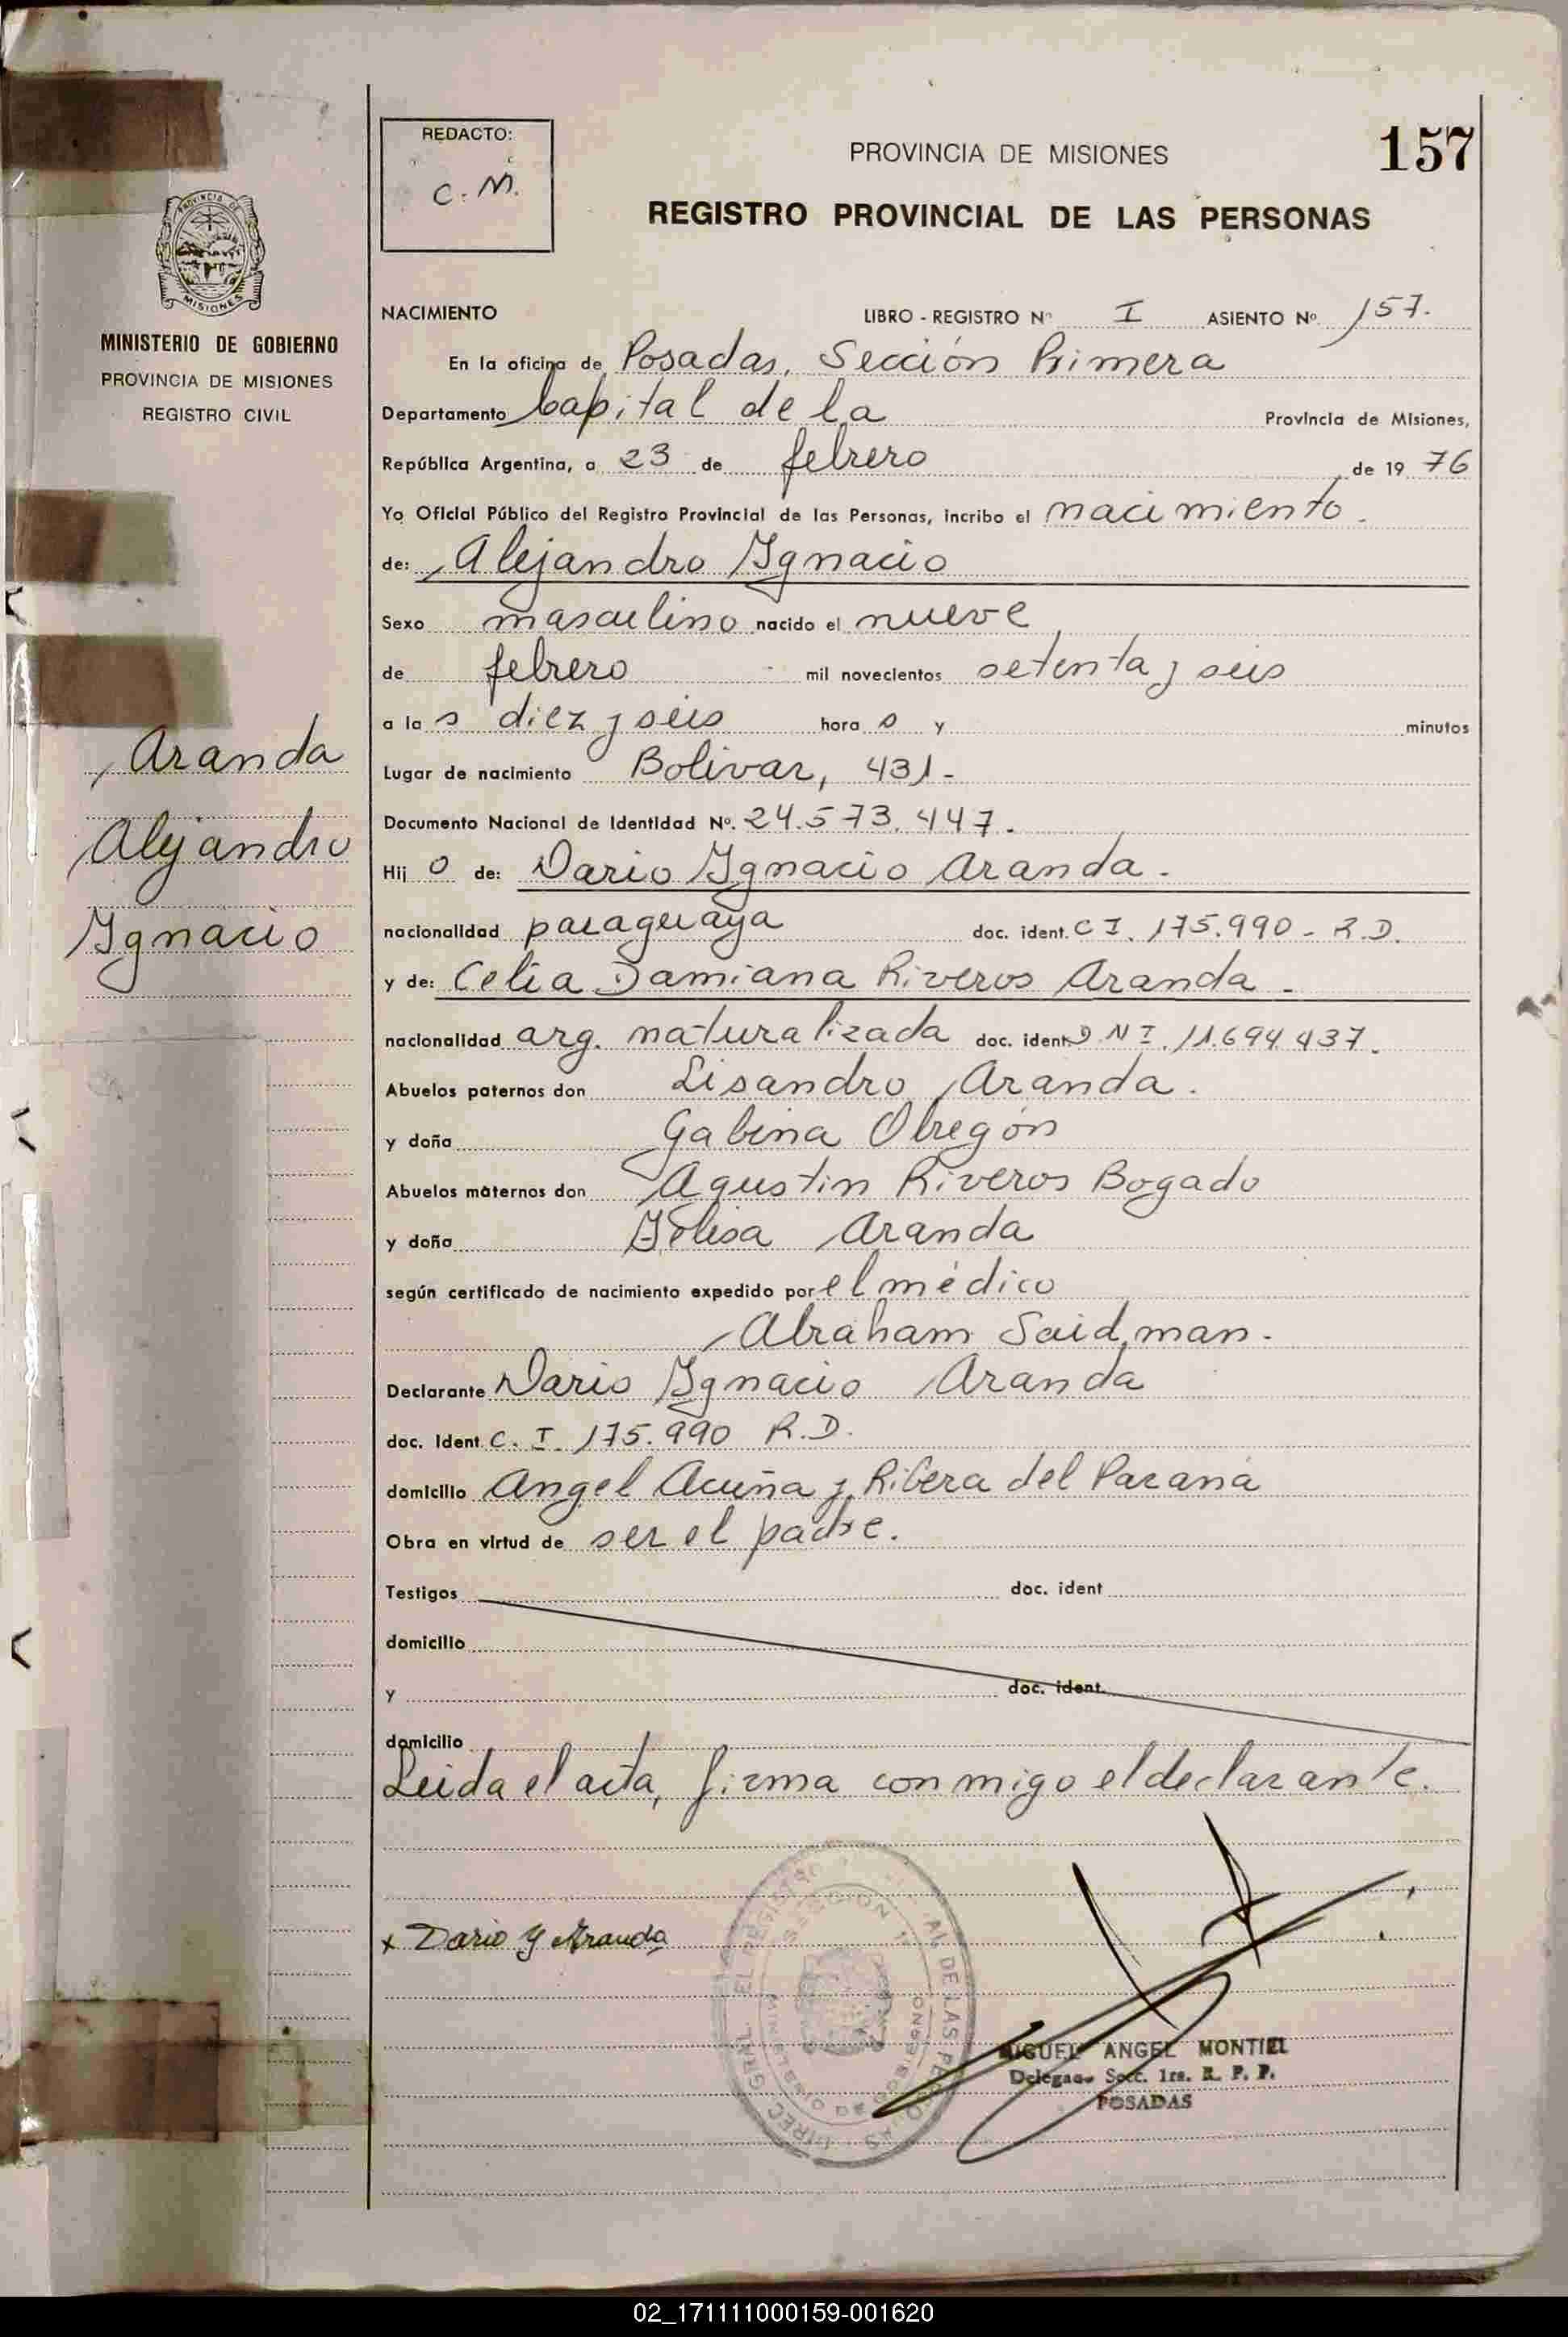 REDACTO:
C. M.
PROVINCIA DE MISIONES
157
REGISTRO PROVINCIAL DE LAS PERSONAS
PROVINCIA DE
MISIONES
MINISTERIO DE GOBIERNO
PROVINCIA DE MISIONES
REGISTRO CIVIL
NACIMIENTO LIBRO - REGISTRO Nº I ASIENTO Nº 157.
En la oficina de Posadas, Sección Primera
Departamento Capital de la Provincia de Misiones,
República Argentina, a 23 de febrero de 19 76
Yo Oficial Público del Registro Provincial de las Personas, incribo el nacimiento.
de: Alejandro Ygnacio
Sexo masculino nacido el nueve
de febrero mil novecientos setenta y seis
a la s diez y seis hora s y minutos
Aranda
Alejandro
Ygnacio
Lugar de nacimiento Bolivar, 431-
Documento Nacional de Identidad Nº. 24.573.447.
Hij o de: Dario Ygnacio Aranda.
nacionalidad paraguaya doc. ident. C I. 175.990 - R.D.
y de: Celia Damiana Riveros Aranda -
nacionalidad arg. naturalizada doc. ident D N I. 11.694.437.
Abuelos paternos don Lisandro Aranda.
y doña Gabina Obregón
Abuelos maternos don Agustin Riveros Bogado
y doña Aranda
según certificado de nacimiento expedido por el médico
Abraham Saidman.
Declarante Dario Ygnacio Aranda
doc. Ident C. I. 175.990 R.D.
domicilio Angel Acuña y Ribera del Paraná
Obra en virtud de ser el padre.
Testigos doc. ident
domicilio
y doc. ident.
domicilio
Leida el acta, firma conmigo el declarante.
x Dario Y Aranda
MIGUEL ANGEL MONTIEL
Delegado Secc. 1ra. R. P. P.
POSADAS
02_171111000159-001620